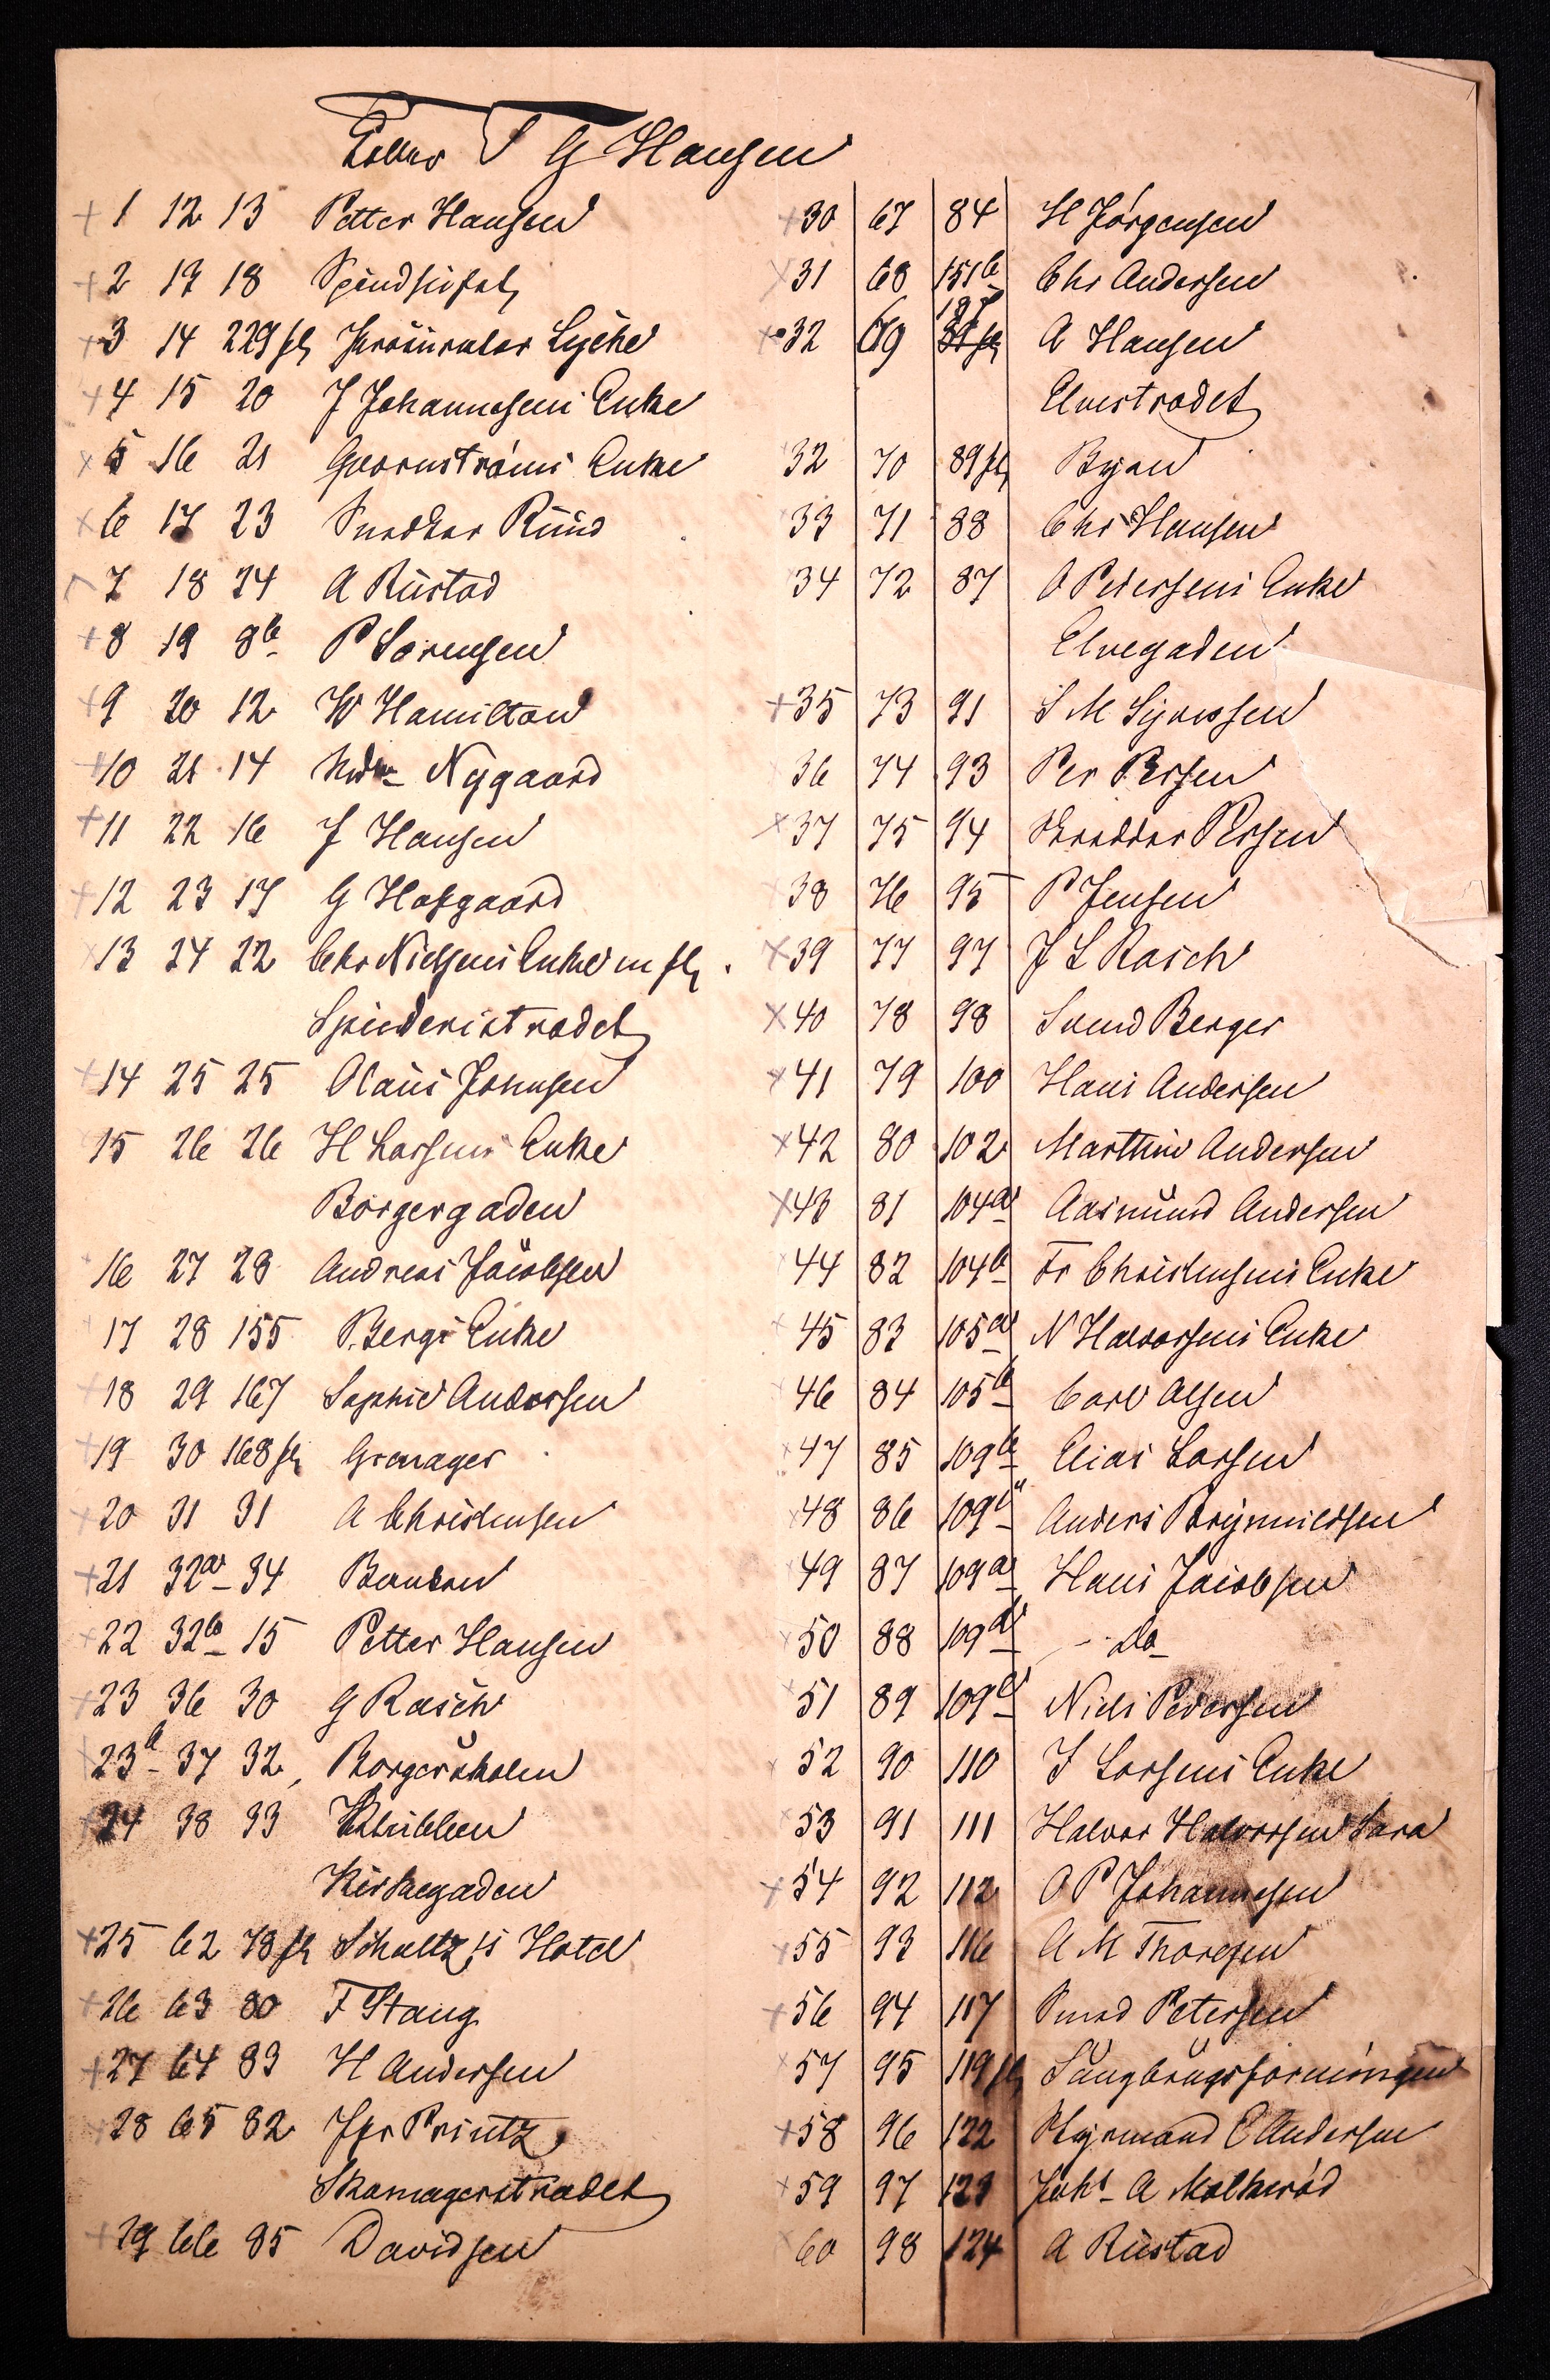 T G Hansen
+ 1 12 13 Petter Hansen
+ 2 13 18
+ 3 14 229 fl Lyche
+ 4 15 20 J Johannesens Enke
x 5 16 21 Enke
x 6 17 23 Snedker Ruud
7 18 24 A Rustad
+ 8 19 8b P Sørensen
+ 9 20 12 W Hamilton
+ 10 21 14 Nygaard
+ 11 22 16 J Hansen
+ 12 23 17 G Hofgaard
x 13 24 22 Chr Nielsens Enke m fl
Spinderistrædet
+ 14 25 25 Olaus Johnsen
15 26 26 H Larsens Enke
Borgergaden
16 27 28 Andreas Jacobsen
17 28 155 P. Bergs Enke
+ 18 29 167 Sophie Andersen
+ 19 30 168 fl Grønager
+ 20 31 31 A Christensen
+ 21 32a 34 Banken
+ 22 32b 15 Petter Hansen
+ 23 36 30 G Rasch
23b 37 32 Borgerskolen
24 38 33 Klubben
Kirkegaden
+ 25 62 78 fl Schultz's Hotel
+ 26 63 80 F Stang
+ 27 64 83 H Andersen
+ 28 65 82 Jgr Printz
Skomagerstrædet
+ 29 66 85 Davidsen
+ 30 67 84 H Jørgensen
x 31 68 151b Chr Andersen
x 32 69 A Hansen
Elvestrædet
32 70 89 fl Byen
33 71 88 Chr Hansen
34 72 87 O Pedersens Enke
Elvegaden
+ 35 73 91 S M Syversen
36 74 93 Per Persen
x 37 75 94 Skredder Persen
38 76 95 P Jensen
x 39 77 97 J L Rasch
x 40 78 98 Svend Berger
x 41 79 100 Hans Andersen
x 42 80 102 Marthin Andersen
x 43 81 104a Aasmund Andersen
44 82 104b Fr Christensens Enke
x 45 83 105a N Halvorsens Enke
46 84 105b Carl Olsen
x 47 85 109b Elias Larsen
x 48 86 109 Anders Brynnildsen
49 87 109a Hans Jacobsen
x 50 88 109d - Do
x 51 89 109 Niels Pedersen
x 52 90 110 J Larsens Enke
x 53 91 111 Halvor Halvorsen
x 54 92 112 O P Johannesen
x 55 93 116 A M Thoresen
+ 56 94 117 Smed Petersen
x 57 95 119 fl Saugbrugsforeningen
+ 58 96 122 Styrmand E Andersen
+ 59 97 123 Johs A Molkerød
60 98 124 A Rustad